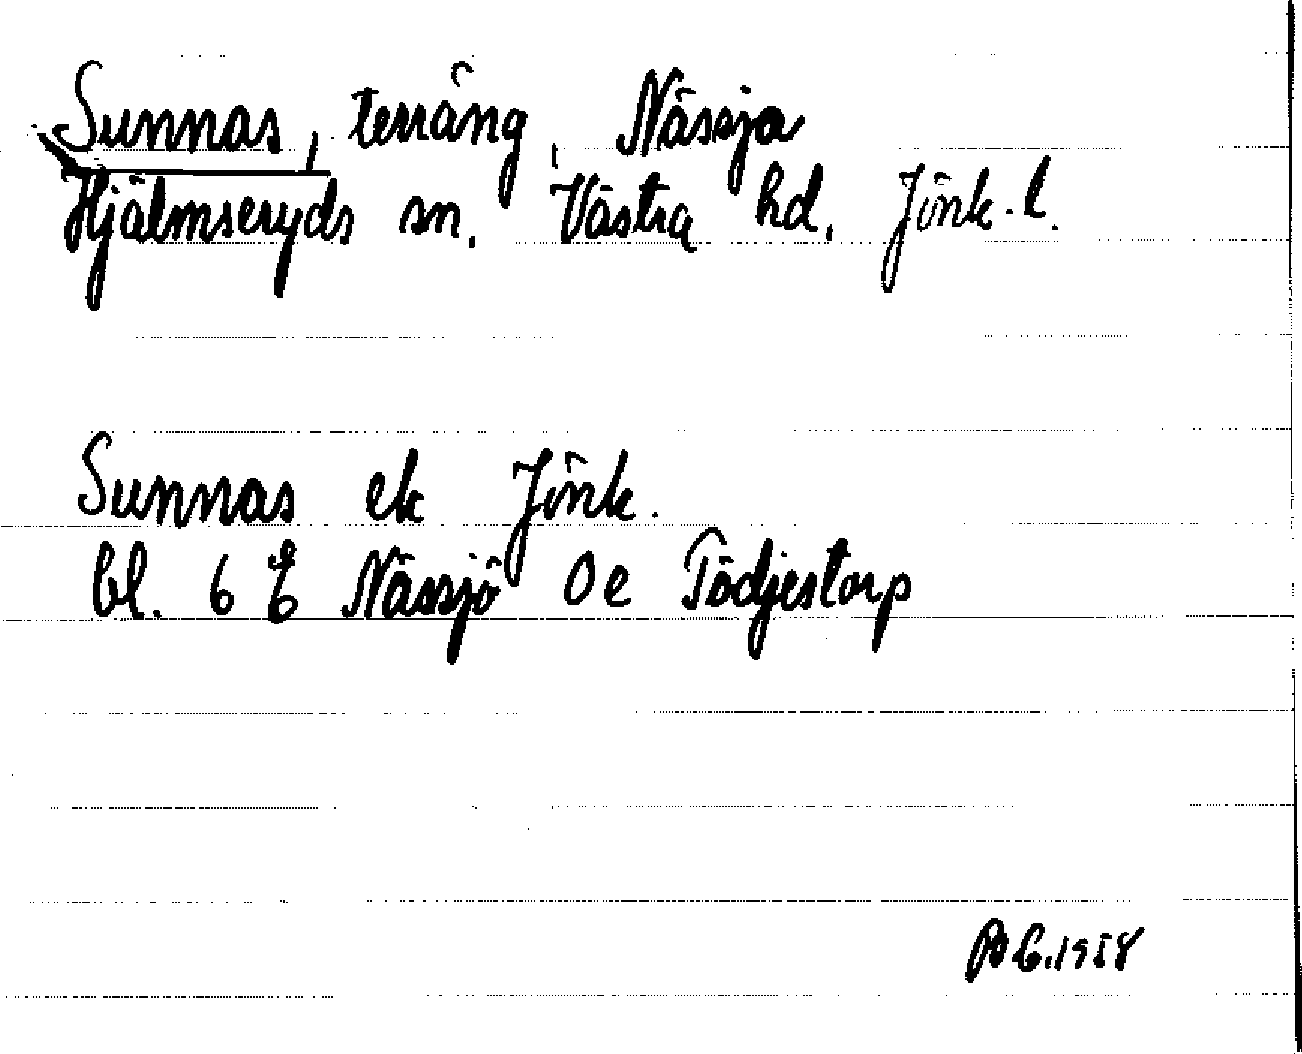 Sunnas, terräng, Nässja
Hjälmseryds sn. Västra hd. Jönk. l.
Sunnas ek Jönk.
bl. 6 E Nässjö 0e Tödjestorp
1958